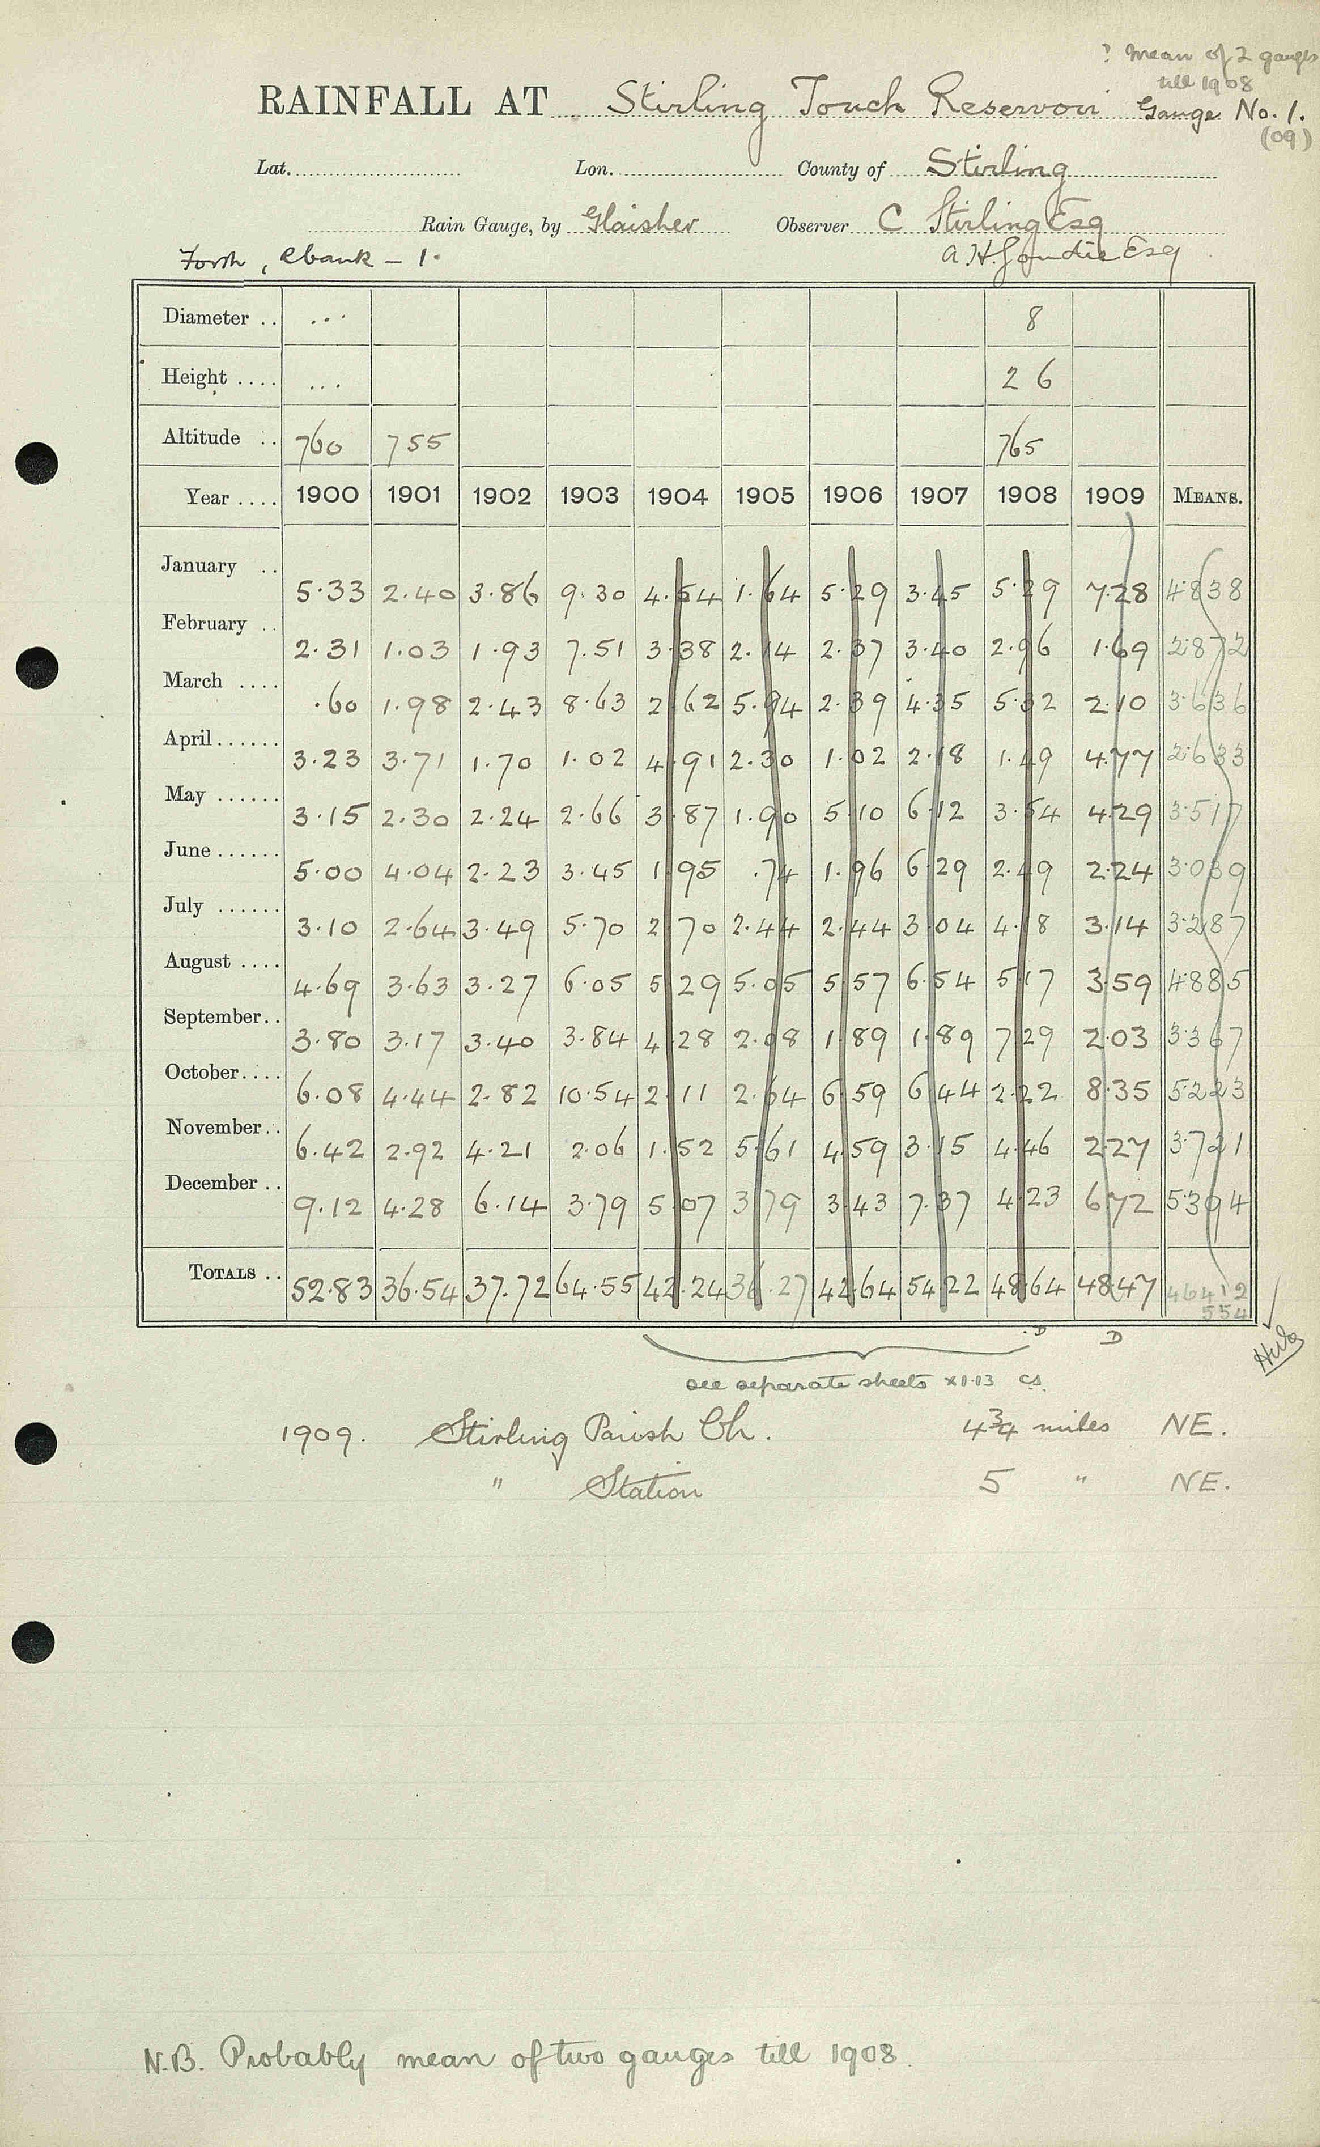 ? Mean of 2 gauges
till 1908
RAINFALL AT Stirling Touch Reservoir Gauge No. 1.
(09)
Lat. Lon. County of Stirling
Rain Gauge, by Glaisher Observer C Stirling Esq
Forth, Rbank - 1. A. H. Goudie Esq
Diameter .. ... 8
Height .... ... 26
Altitude .. 760 755 765
Year .... 1900 1901 1902 1903 1904 1905 1906 1907 1908 1909 MEANS.
January .. 5.33 2.40 3.86 9.30 4.54 1.64 5.29 3.45 5.29 7.28 4.838
February .. 2.31 1.03 1.93 7.51 3.38 2.14 2.37 3.40 2.96 1.69 2.872
March .... .60 1.98 2.43 8.63 2.62 5.94 2.39 4.35 5.32 2.10 3.636
April...... 3.23 3.71 1.70 1.02 4.91 2.30 1.02 2.18 1.49 4.77 2.633
May ...... 3.15 2.30 2.24 2.66 3.87 1.90 5.10 6.12 3.54 4.29 3.517
June...... 5.00 4.04 2.23 3.45 1.95 .74 1.96 6.29 2.49 2.24 3.039
July ...... 3.10 2.64 3.49 5.70 2.70 2.44 2.44 3.04 4.18 3.14 3.287
August .... 4.69 3.63 3.27 6.05 5.29 5.05 5.57 6.54 5.17 3.59 4.885
September.. 3.80 3.17 3.40 3.84 4.28 2.08 1.89 1.89 7.29 2.03 3.367
October.... 6.08 4.44 2.82 10.54 2.11 2.64 6.59 6.44 2.22 8.35 5.223
November.. 6.42 2.92 4.21 2.06 1.52 5.61 4.59 3.15 4.46 2.27 3.721
December .. 9.12 4.28 6.14 3.79 5.07 3.79 3.43 7.37 4.23 6.72 5.394
TOTALS .. 52.83 36.54 37.72 64.55 42.24 36.27 42.64 54.22 48.64 48.47 46412
554
D D
see separate sheets x1.13 cs.
1909. Stirling Parish Ch. 4 3/4 miles NE.
" Station 5 " NE.
N.B. Probably mean of two gauges till 1908.